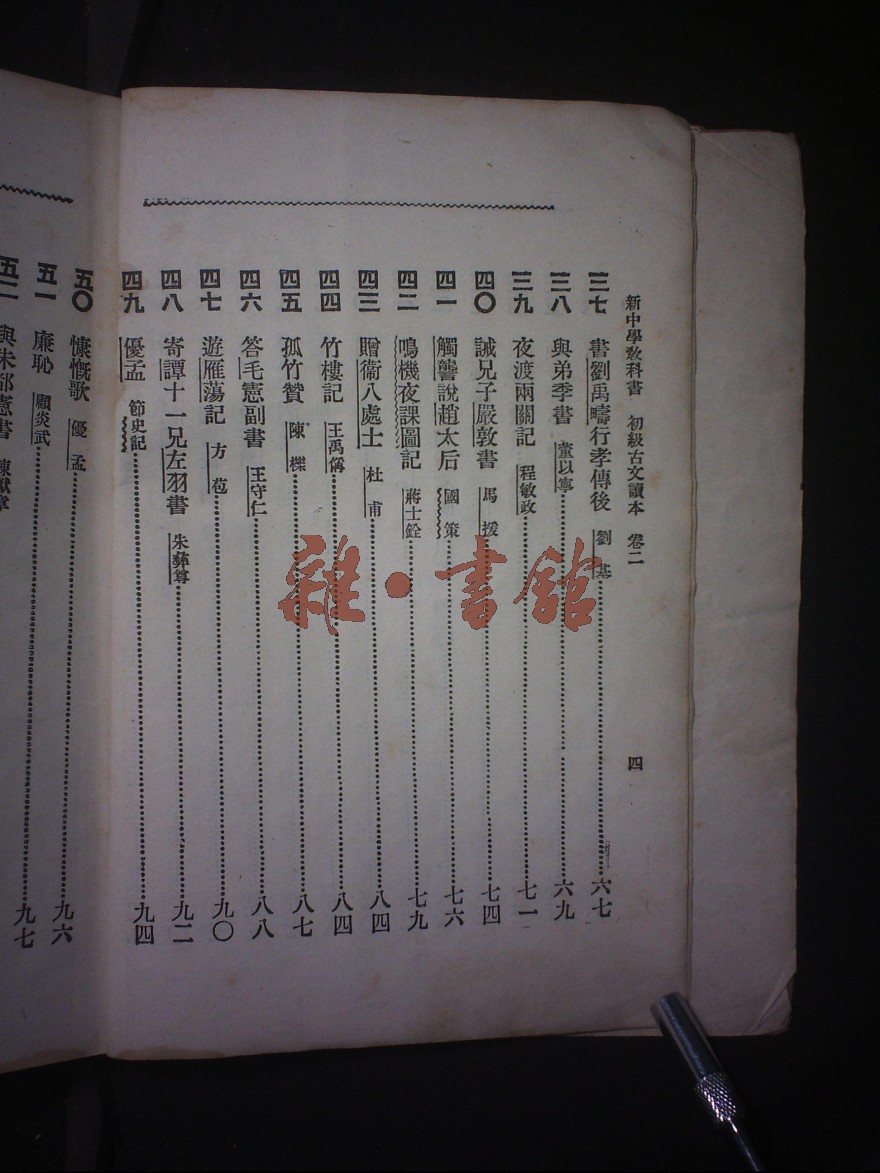 新中學教科書 初級古文讀本 卷二
四
三七 書劉禹疇行孝傳後 劉基 六七
三八 與弟季書 董以寧 六九
三九 夜渡兩關記 程敏政 七一
四〇 誡兄子嚴敦書 馬援 七四
四一 觸讋說趙太后 國策 七六
四二 鳴機夜課圖記 蔣士銓 七九
四三 贈衞八處士 杜甫 八四
四四 竹樓記 王禹偁 八四
四五 孤竹贊 陳櫟 八七
四六 答毛憲副書 王守仁 八八
四七 遊雁蕩記 方苞 九〇
四八 寄譚十一兄左羽書 朱彝尊 九二
四九 優孟 節史記 九四
五〇 慷慨歌 優孟 九六
五一 廉恥 顧炎武 九七
五二 與朱都憲書 陳獻章
雜·書館